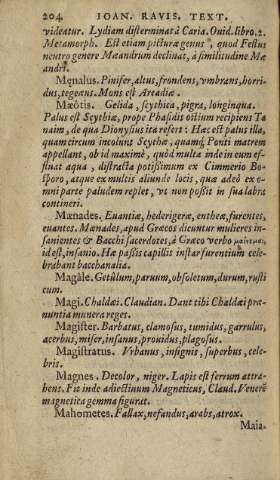 204 IOAN. RAVIS. TEXT.
videatur. Lydiam disterminat à Caria. Ouid. libro. 2.
Metamorph. Est etiam picturæ genus, quod Festus
neutro genere Mæandrum declinat, à similitudine Mæ
andri.
Menalus. Pinifer, altus, frondens, vmbrans, horri-
dus, tegeæus. Mons est Arcadiæ.
Mæotis. Gelida, scythica, pigra, longinqua.
Palus est Scythiæ, prope Phasidis ostium recipiens Ta
naim, de qua Dionysius ita refert: Hæc est palus illa,
quam circum incolunt Scythæ, quamq́; Ponti matrem
appellant, ob id maximè, quòd multa inde in eum ef-
fluat aqua, distracta potissimum ex Cimmerio Bo-
sporo, atque ex multis aliunde locis, quæ adeò ex o-
mni parte paludem replet, vt non possit in sua labra
contineri.
Mænades. Euantiæ, hederigeræ, entheæ, furentes,
euantes. Mænades, apud Græcos dicuntur mulieres in-
sanientes & Bacchi sacerdotes, à Græco verbo μαίνεμαι,
id est, insanio. Hæ passis capillis instar furentium cele-
brabant bacchanalia.
Magále. Getúlum, paruum, obsoletum, durum, rusti
cum.
Magi. Chaldæi. Claudian. Dant tibi Chaldæi præ-
nuntia munera reges.
Magister. Barbatus, clamosus, tumidus, garrulus,
acerbus, miser, insanus, prouidus, plagosus.
Magistratus. Vrbanus, insignis, superbus, cele-
bris.
Magnes. Decolor, niger. Lapis est ferrum attra-
hens. Fit inde adiectiuum Magneticus, Claud. Venerē
magnetica gemma figurat.
Mahometes. Fallax, nefandus, arabs, atrox.
Maia-